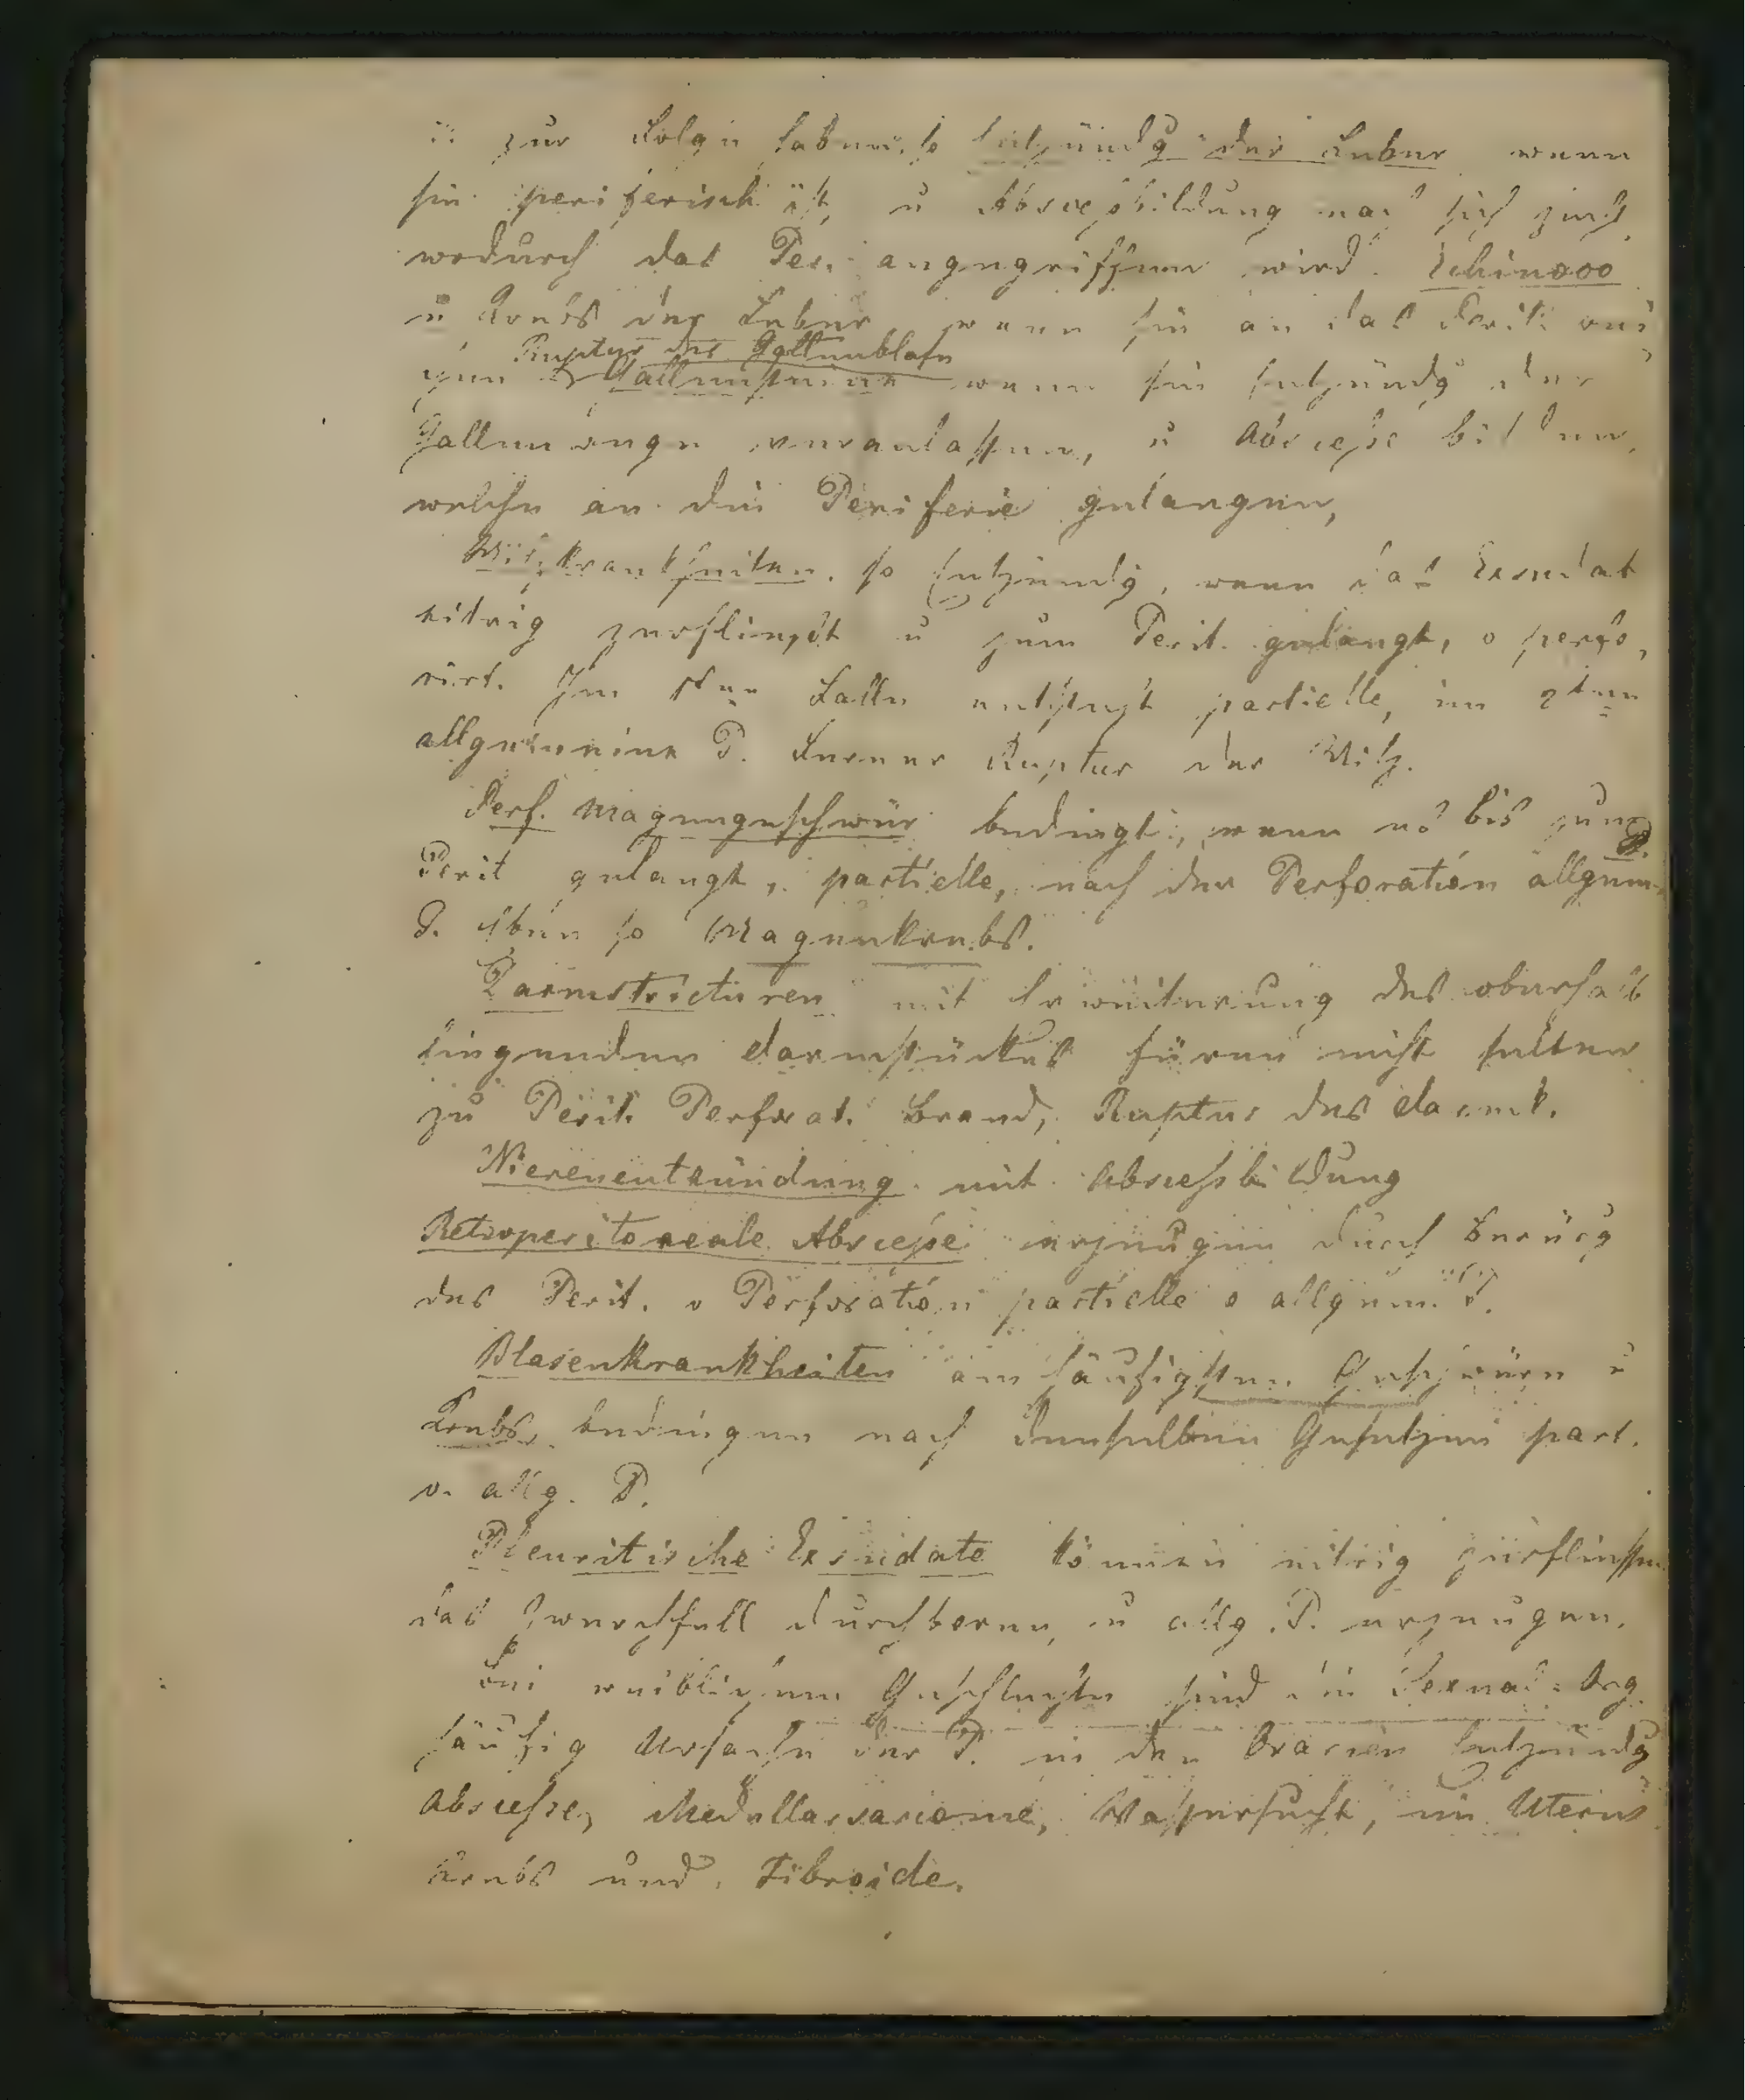 zur Folge haben, so Entzündg der Leber wenn
sie periferisch ist, u Abscessbildung nach sich zieht
wodurch das Per. angegriffen wird. Echinococ
u Krebs der Leber, wenn sie an das Perit.
Ruptur der Gallenblase
Gallensteine wenn sie Entzündg der
Gallenwege veranlassen, u Abscesse bilden,
welche an die Periferie gelangen,
Milzkrankheiten. so Entzündg, wenn das Exsudat
eitrig zerfliesst u zum Perit. gelangt, o perfo,
rirt. Im 1ten Falle entsteht partielle, im 2ten
allgemeine P. Ferner Ruptur der Milz.
Perf. Magengeschwür bedingt, wenn es bis zum
Perit gelangt, partielle, nach der Perforation allgem.
P. Eben so Magenkrebs.
Darmstricturen mit Erweiterung des oberhalb
liegenden Darmstückes füren nicht selten
zu Perit. Perforat. Brand, Ruptur des Darms.
Nierenentzündung mit Abscessbildung
Retroperitoneale Abscesse erzeugen durch Berürg
des Perit. o Perforation partielle o allgem. P.
Blasenkrankheiten am häufigsten Geschwüre u
Krebs, bedingen nach denselben Gesetzen part.
o. allg. P.
Pleuritische Exsudate können eitrig zerfliessen
das Zwerchfell durchboren, u allg. P. erzeugen.
Bei weiblichem Geschlechte sind die Sexual-Org.
häufig Ursache der P. in den Ovarien Entzündg
Abscesse, Medullarsarcome, Wassersucht, im Uterus
Krebs und Fibroide.